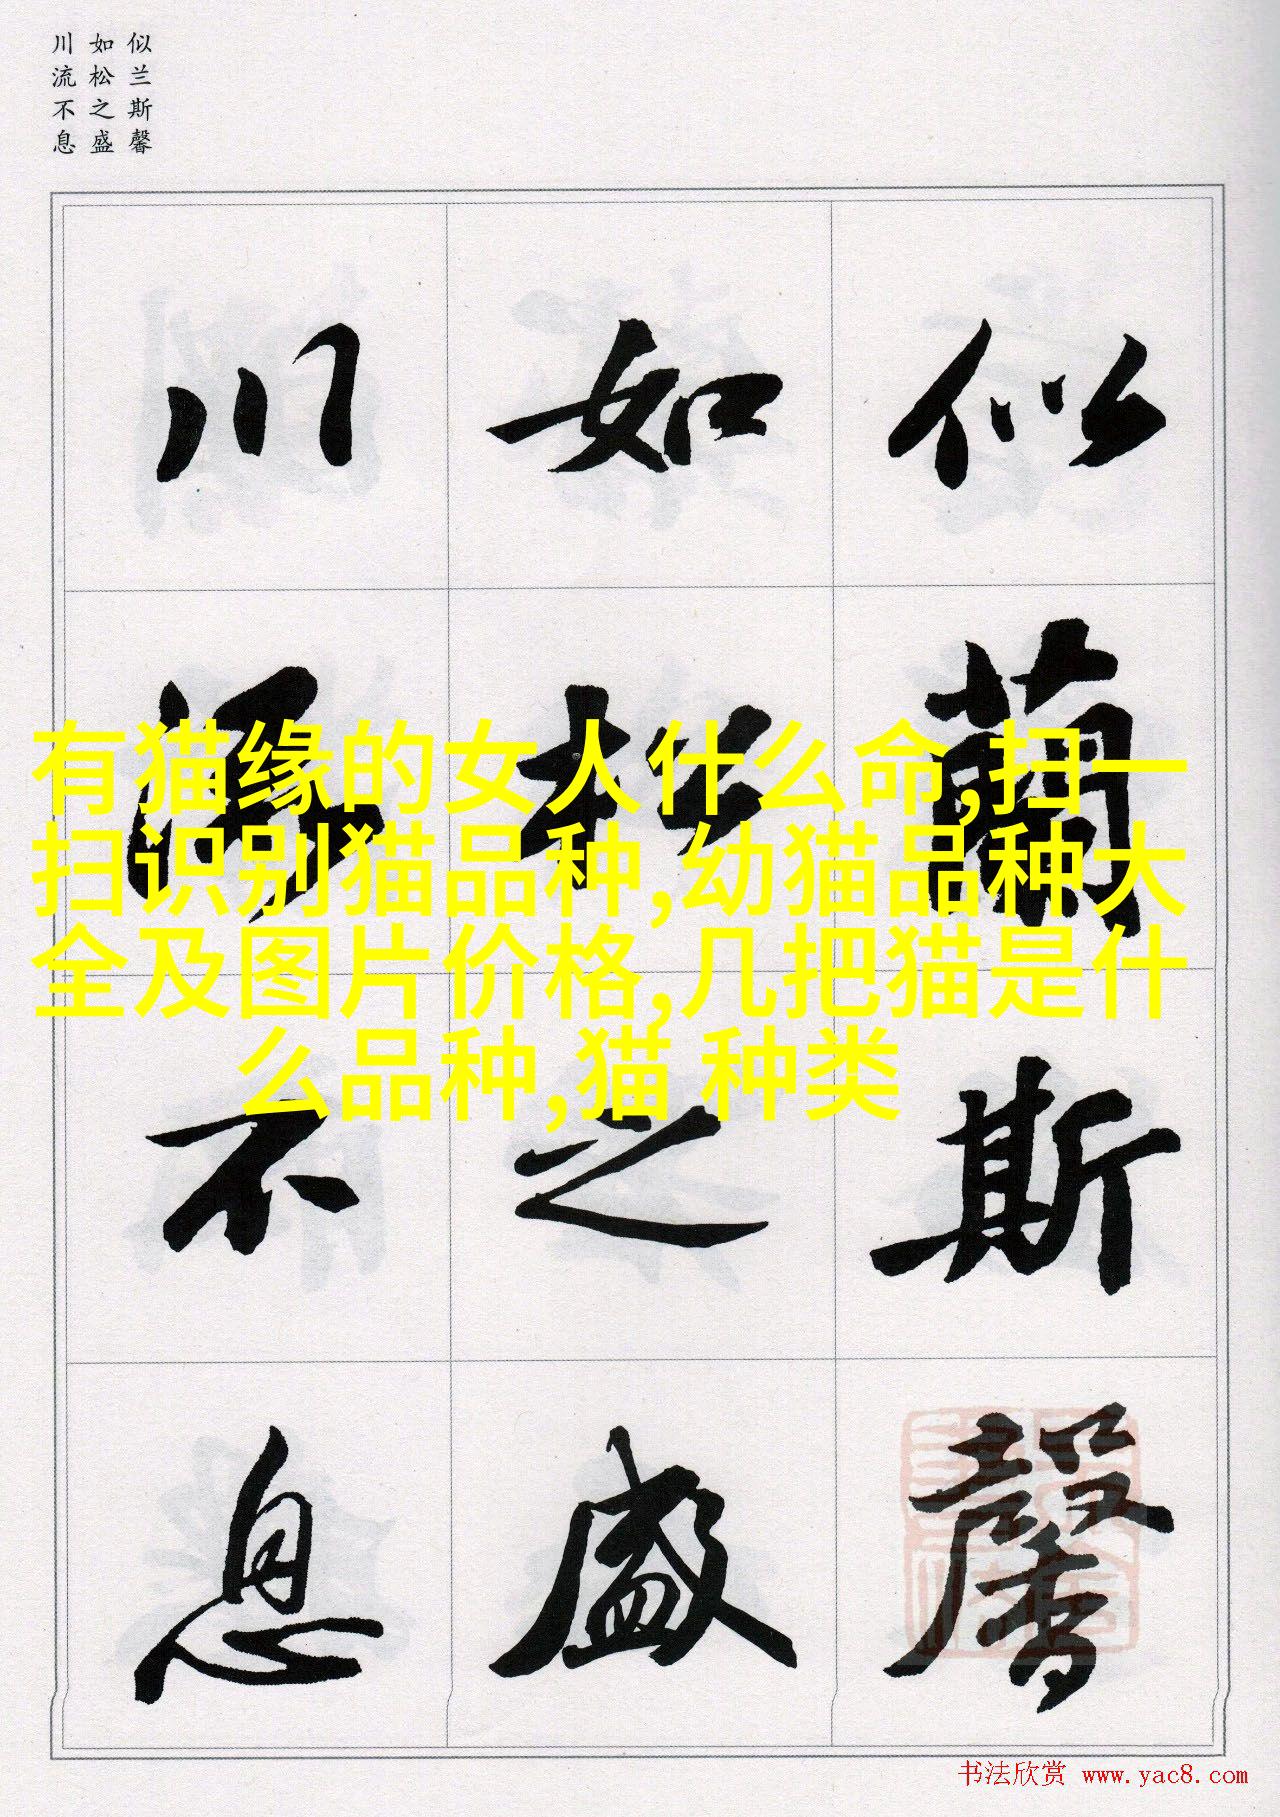 似兰斯馨
如松之盛
川流不息
似蘭斯馨
如松之盛
川流不息
有猫缘的女人什么命,扫一
扫识别猫品种,幼猫品种大
全及图片价格,几把猫是什
么品种,猫 种类
书法欣赏 www.yac8.com